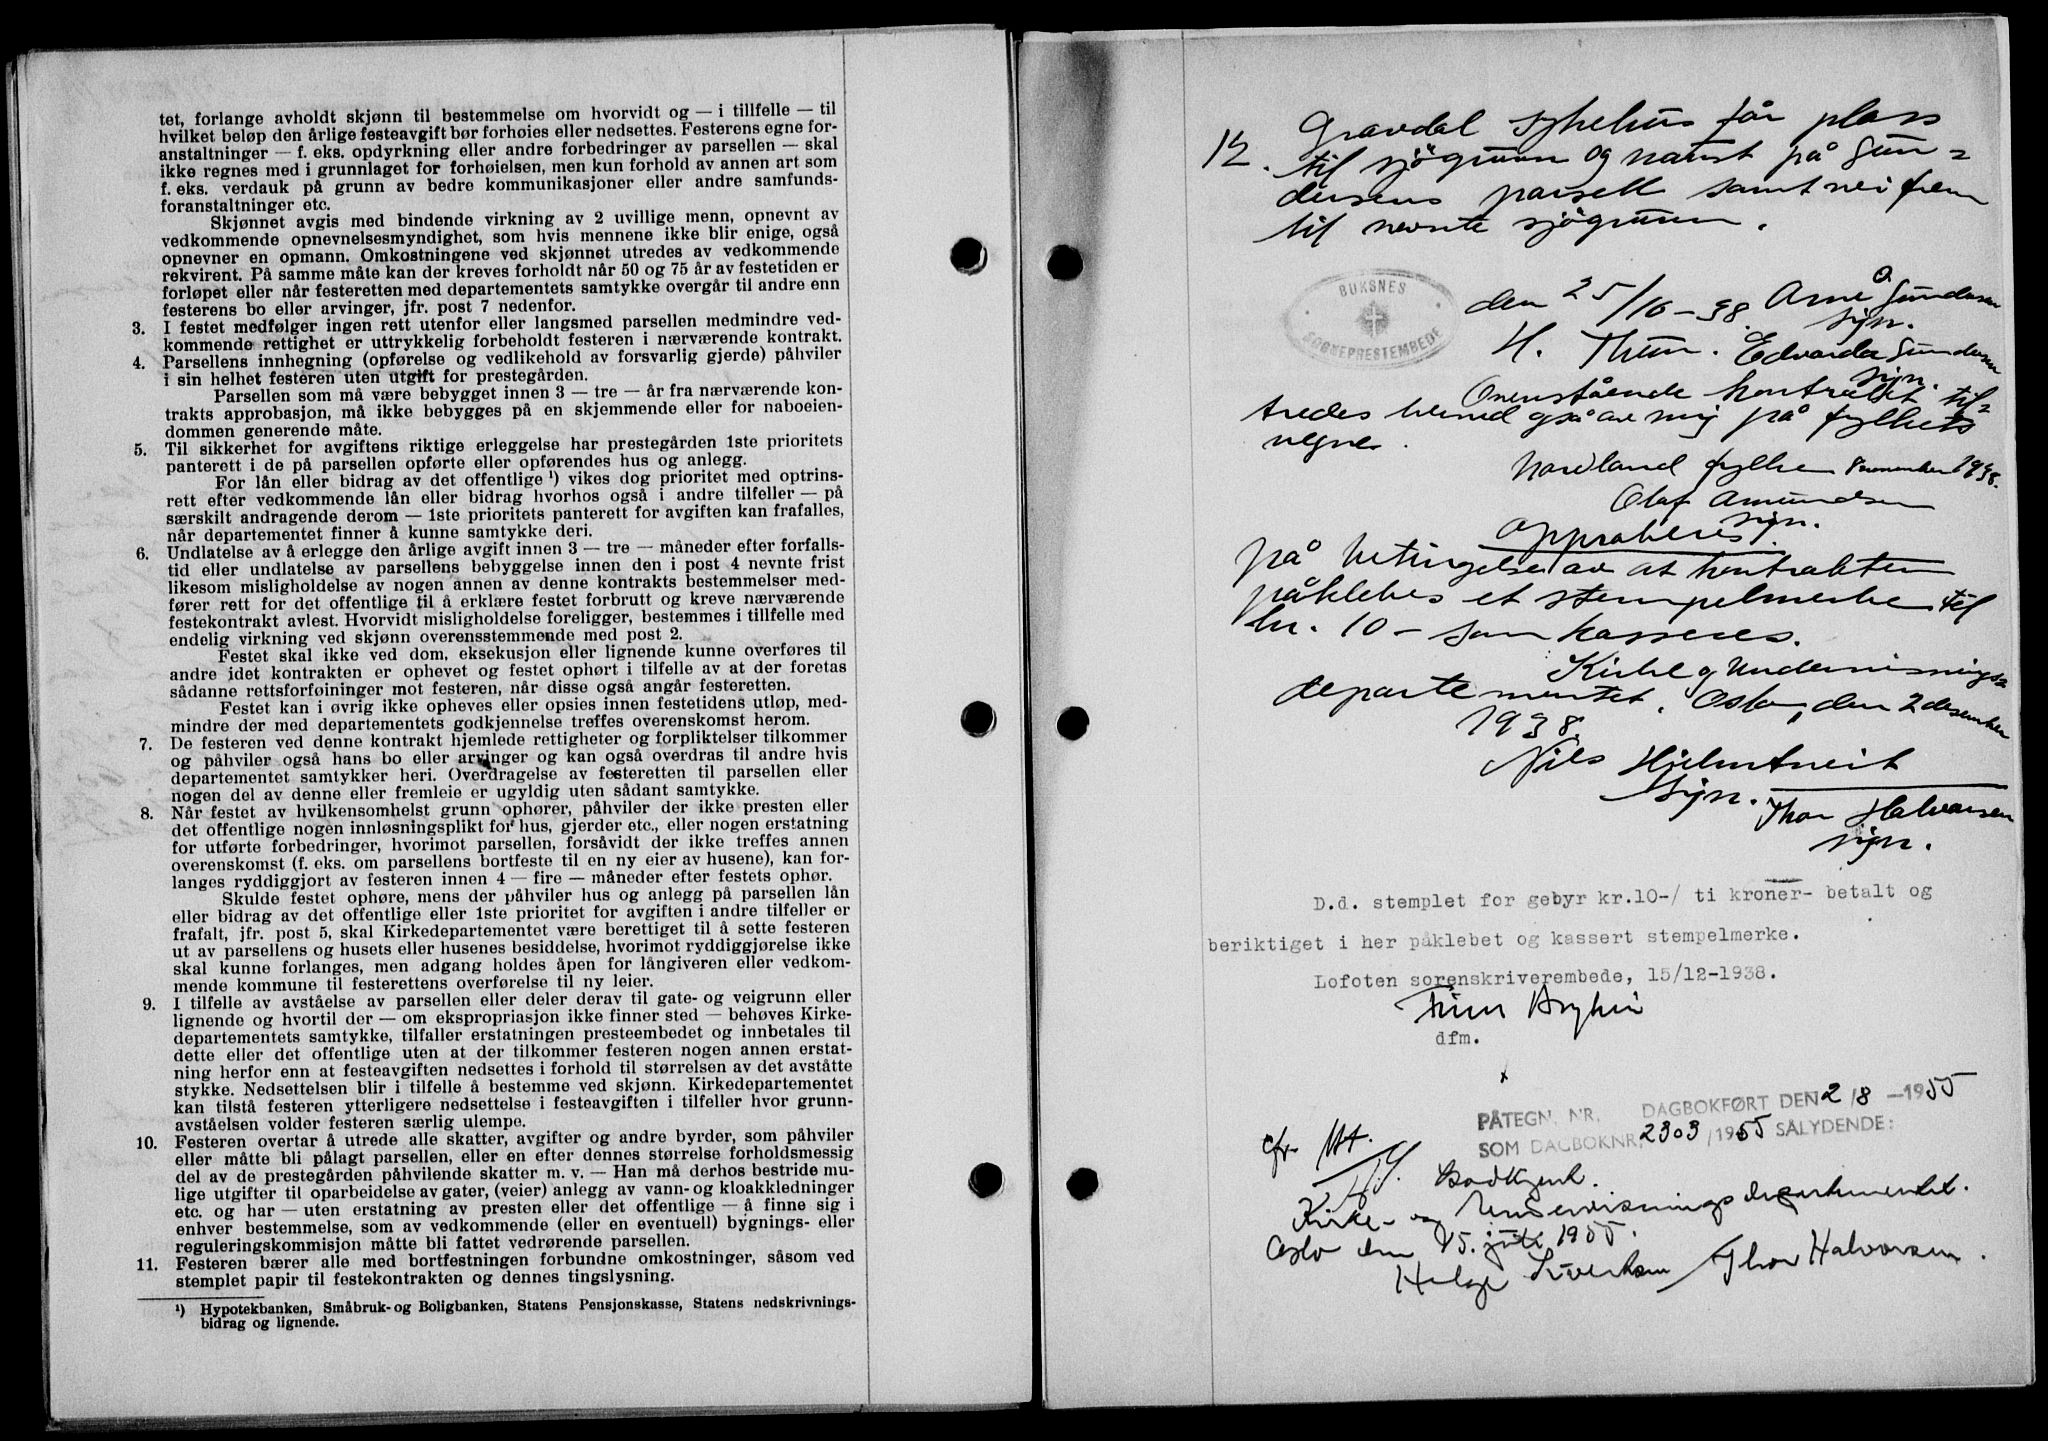 tet, forlange avholdt skjønn til bestemmelse om hvorvidt og — i tillfelle — til
hvilket beløp den årlige festeavgift bør forhøies eller nedsettes. Festerens egne for-
anstaltninger — f. eks. opdyrkning eller andre forbedringer av parsellen — skal
ikke regnes med i grunnlaget for forhøielsen, men kun forhold av annen art som
f. eks. verdauk på grunn av bedre kommunikasjoner eller andre samfunds-
foranstaltninger etc.
Skjønnet avgis med bindende virkning av 2 uvillige menn, opnevnt av
vedkommende opnevnelsesmyndighet, som hvis mennene ikke blir enige, også
opnevner en opmann. Omkostningene ved skjønnet utredes av vedkommende
rekvirent. På samme måte kan der kreves forholdt når 50 og 75 år av festetiden er
forløpet eller når festeretten med departementets samtykke overgår til andre enn
festerens bo eller arvinger, jfr. post 7 nedenfor.
3. I festet medfølger ingen rett utenfor eller langsmed parsellen medmindre ved-
kommende rettighet er uttrykkelig forbeholdt festeren i nærværende kontrakt.
4. Parsellens innhegning (opførelse og vedlikehold av forsvarlig gjerde) påhviler
i sin helhet festeren uten utgift for prestegården.
Parsellen som må være bebygget innen 3 — tre — år fra nærværende kon-
trakts approbasjon, må ikke bebygges på en skjemmende eller for naboeien-
dommen generende måte.
5. Til sikkerhet for avgiftens riktige erleggelse har prestegården 1ste prioritets
panterett i de på parsellen opførte eller opførendes hus og anlegg.
For lån eller bidrag av det offentlige ¹) vikes dog prioritet med optrins-
rett efter vedkommende lån eller bidrag hvorhos også i andre tilfeller — på
særskilt andragende derom — 1ste prioritets panterett for avgiften kan frafalles,
når departementet finner å kunne samtykke deri.
6. Undlatelse av å erlegge den årlige avgift innen 3 — tre — måneder efter forfalls-
tid eller undlatelse av parsellens bebyggelse innen den i post 4 nevnte frist
likesom misligholdelse av nogen annen av denne kontrakts bestemmelser med-
fører rett for det offentlige til å erklære festet forbrutt og kreve nærværende
festekontrakt avlest. Hvorvidt misligholdelse foreligger, bestemmes i tillfelle med
endelig virkning ved skjønn overensstemmende med post 2.
Festet skal ikke ved dom, eksekusjon eller lignende kunne overføres til
andre idet kontrakten er ophevet og festet ophørt i tilfelle av at der foretas
sådanne rettsforføininger mot festeren, når disse også angår festeretten.
Festet kan i øvrig ikke opheves eller opsies innen festetidens utløp, med-
mindre der med departementets godkjennelse treffes overenskomst herom.
7. De festeren ved denne kontrakt hjemlede rettigheter og forpliktelser tilkommer
og påhviler også hans bo eller arvinger og kan også overdras til andre hvis
departementet samtykker heri. Overdragelse av festeretten til parsellen eller
nogen del av denne eller fremleie er ugyldig uten sådant samtykke.
8. Når festet av hvilkensomhelst grunn ophører, påhviler der ikke presten eller
det offentlige nogen innløsningsplikt for hus, gjerder etc., eller nogen erstatning
for utførte forbedringer, hvorimot parsellen, forsåvidt der ikke treffes annen
overenskomst (f. eks. om parsellens bortfeste til en ny eier av husene), kan for-
langes ryddiggjort av festeren innen 4 — fire — måneder efter festets ophør.
Skulde festet ophøre, mens der påhviler hus og anlegg på parsellen lån
eller bidrag av det offentlige eller 1ste prioritet for avgiften i andre tilfeller er
frafalt, jfr. post 5, skal Kirkedepartementet være berettiget til å sette festeren
ut av parsellens og husets eller husenes besiddelse, hvorimot ryddiggjørelse ikke
skal kunne forlanges, men adgang holdes åpen for långiveren eller vedkom-
mende kommune til festerettens overførelse til ny leier.
9. I tilfelle av avståelse av parsellen eller deler derav til gate- og veigrunn eller
lignende og hvortil der — om ekspropriasjon ikke finner sted — behøves Kirke-
departementets samtykke, tilfaller erstatningen presteembedet og innbetales til
dette eller det offentlige uten at der tilkommer festeren nogen annen erstat-
ning herfor enn at festeavgiften nedsettes i forhold til størrelsen av det avståtte
stykke. Nedsettelsen blir i tilfelle å bestemme ved skjønn. Kirkedepartementet
kan tilstå festeren ytterligere nedsettelse i festeavgiften i tilfeller hvor grunn-
avståelsen volder festeren særlig ulempe.
10. Festeren overtar å utrede alle skatter, avgifter og andre byrder, som påhviler
eller måtte bli pålagt parsellen, eller en efter dennes størrelse forholdsmessig
del av de prestegården påhvilende skatter m. v. — Han må derhos bestride mu-
lige utgifter til oparbeidelse av gater, (veier) anlegg av vann- og kloakkledninger
etc. og har — uten erstatning av presten eller det offentlige — å finne sig i
enhver bestemmelse, som av vedkommende (eller en eventuell) bygnings- eller
reguleringskommisjon måtte bli fattet vedrørende parsellen.
11. Festeren bærer alle med bortfestningen forbundne omkostninger, såsom ved
stemplet papir til festekontrakten og dennes tingslysning.
¹) Hypotekbanken, Småbruk- og Boligbanken, Statens Pensjonskasse, Statens nedskrivnings-
bidrag og lignende.
12. Gravdal sykehus får plass
til sjøgrunn og naust på Gun-
dersens parsell samt vei frem
til nevnte sjøgrunn.
BUKSNES
SOGNEPRESTEMBEDE
den 25/10-38. Arne Gundersen
sign.
H. Thun. Edvarda Gundersen
sign.
Ovenstående kontrakt til-
tredes herved også av mig på fylkets
vegne.
Nordland fylke 8 november 1938.
Olaf Amundsen
sign.
Approberes
på betingelse av at kontrakten
påklebes et stempelmerke til
kr. 10 - som kasseres.
Kirke og Undervisnings-
departementet. Oslo, den 2 desember
1938.
Nils Hjelmtveit
sign.
Thor Halvorsen
sign.
D.d. stemplet for gebyr kr.10-/ ti kroner- betalt og
beriktiget i her påklebet og kassert stempelmerke.
Lofoten sorenskriverembede, 15/12-1938.
dfm.
PÅTEGN. NR. DAGBOKFØRT DEN 2/8 - 1955
SOM DAGBOKNR. 2303/1955 SÅLYDENDE:
cfr.
Godkjent.
Kirke- og Undervisningsdepartementet.
Oslo den 15. juli 1955.
Helge Sivertsen / Thor Halvorsen.